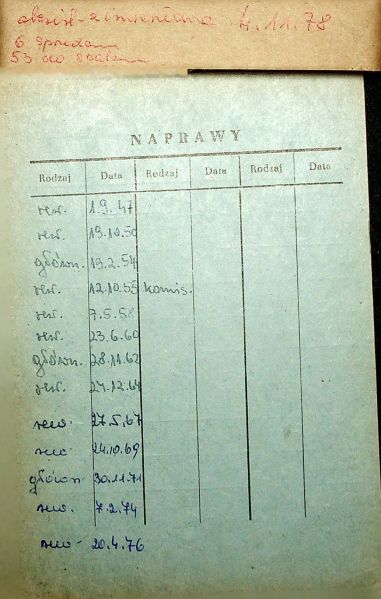 skreśl. z inwentarza 4.11.78
6 sprzedam
53 do
NAPRAWY
Rodzaj Data Rodzaj Data Rodzaj Data
rew. 1.9.47
rew. 19.10.50
główn. 19.2.54
rew. 12.10.55 komis.
rew. 7.5.58
rew. 23.6.60
główn. 28.11.62
rew. 27.12.64
rew. 27.5.67
rew. 24.10.69
główn 30.11.71
rew. 7.2.74
rew. 20.4.76